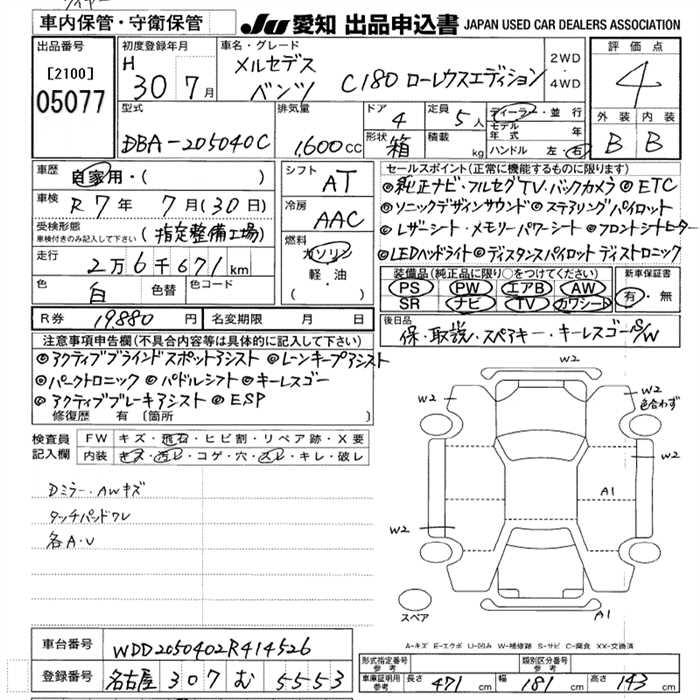 車内保管・守衛保管
JU 愛知 出品申込書 JAPAN USED CAR DEALERS ASSOCIATION
出品番号
[2100]
05077
初度登録年月
H 30 7月
車名・グレード
メルセデス
ベンツ C180 ローレウスエディション
2WD
・
4WD
評価点
4
外装 内装
B B
型式
DBA-205040C
排気量
1,600 CC
ドア
4
形状 箱
定員
5人
積載 kg
ディーラー・並行
モデル年式 年
ハンドル 左・右
車歴
自家用・( )
車検 R7年 7月(30日)
受検形態
車検付きのみ記入して下さい (指定整備工場)
走行
2万6千671km
色 白 色替 色コード
シフト AT
冷房 AAC
燃料
ガソリン
軽・油
( )
セールスポイント(正常に機能するものに限ります)
◎純正ナビ・フルセグTV.バックカメラ ◎ETC
◎ソニックデザインサウンド ◎ステアリングパイロット
◎レザーシート・メモリーパワーシート ◎フロントシートヒーター
◎LEDヘッドライト ◎ディスタンスパイロット ディストロニック
装備品(純正品に限り○をつけてください)
PS PW エアB AW
SR ナビ TV カワシート
新車保証書
有・無
R券 19,880円 名変期限 月 日
後日品
保・取説・スペアキー・キーレスゴーS/W
注意事項申告欄(不具合内容等は具体的に記入して下さい)
◎アクティブブラインドスポットアシスト ◎レーンキープアシスト
◎パークトロニック ◎パドルシフト ◎キーレスゴー
◎アクティブブレーキアシスト ◎ESP
修復歴 有 〔箇所 〕
検査員記入欄
FW キズ・飛石・ヒビ割・リペア跡・X要
内装 キズ・汚レ・コゲ・穴・スレ・キレ・破レ
Dミラー・AWキズ
タッチパッドワレ
各A・U
W2
W2
W2
色合わず
A1
W2
A1
スペア
A-キズ E-エクボ U-凹み W-補修跡 S-サビ C-腐食 XX-交換済
車台番号 WDD2050402R414526
登録番号 名古屋 307 む 5553
形式指定番号
参考
類別区分番号
参考
車庫証明用
参考
長さ 471 cm 幅 181 cm 高さ 143 cm